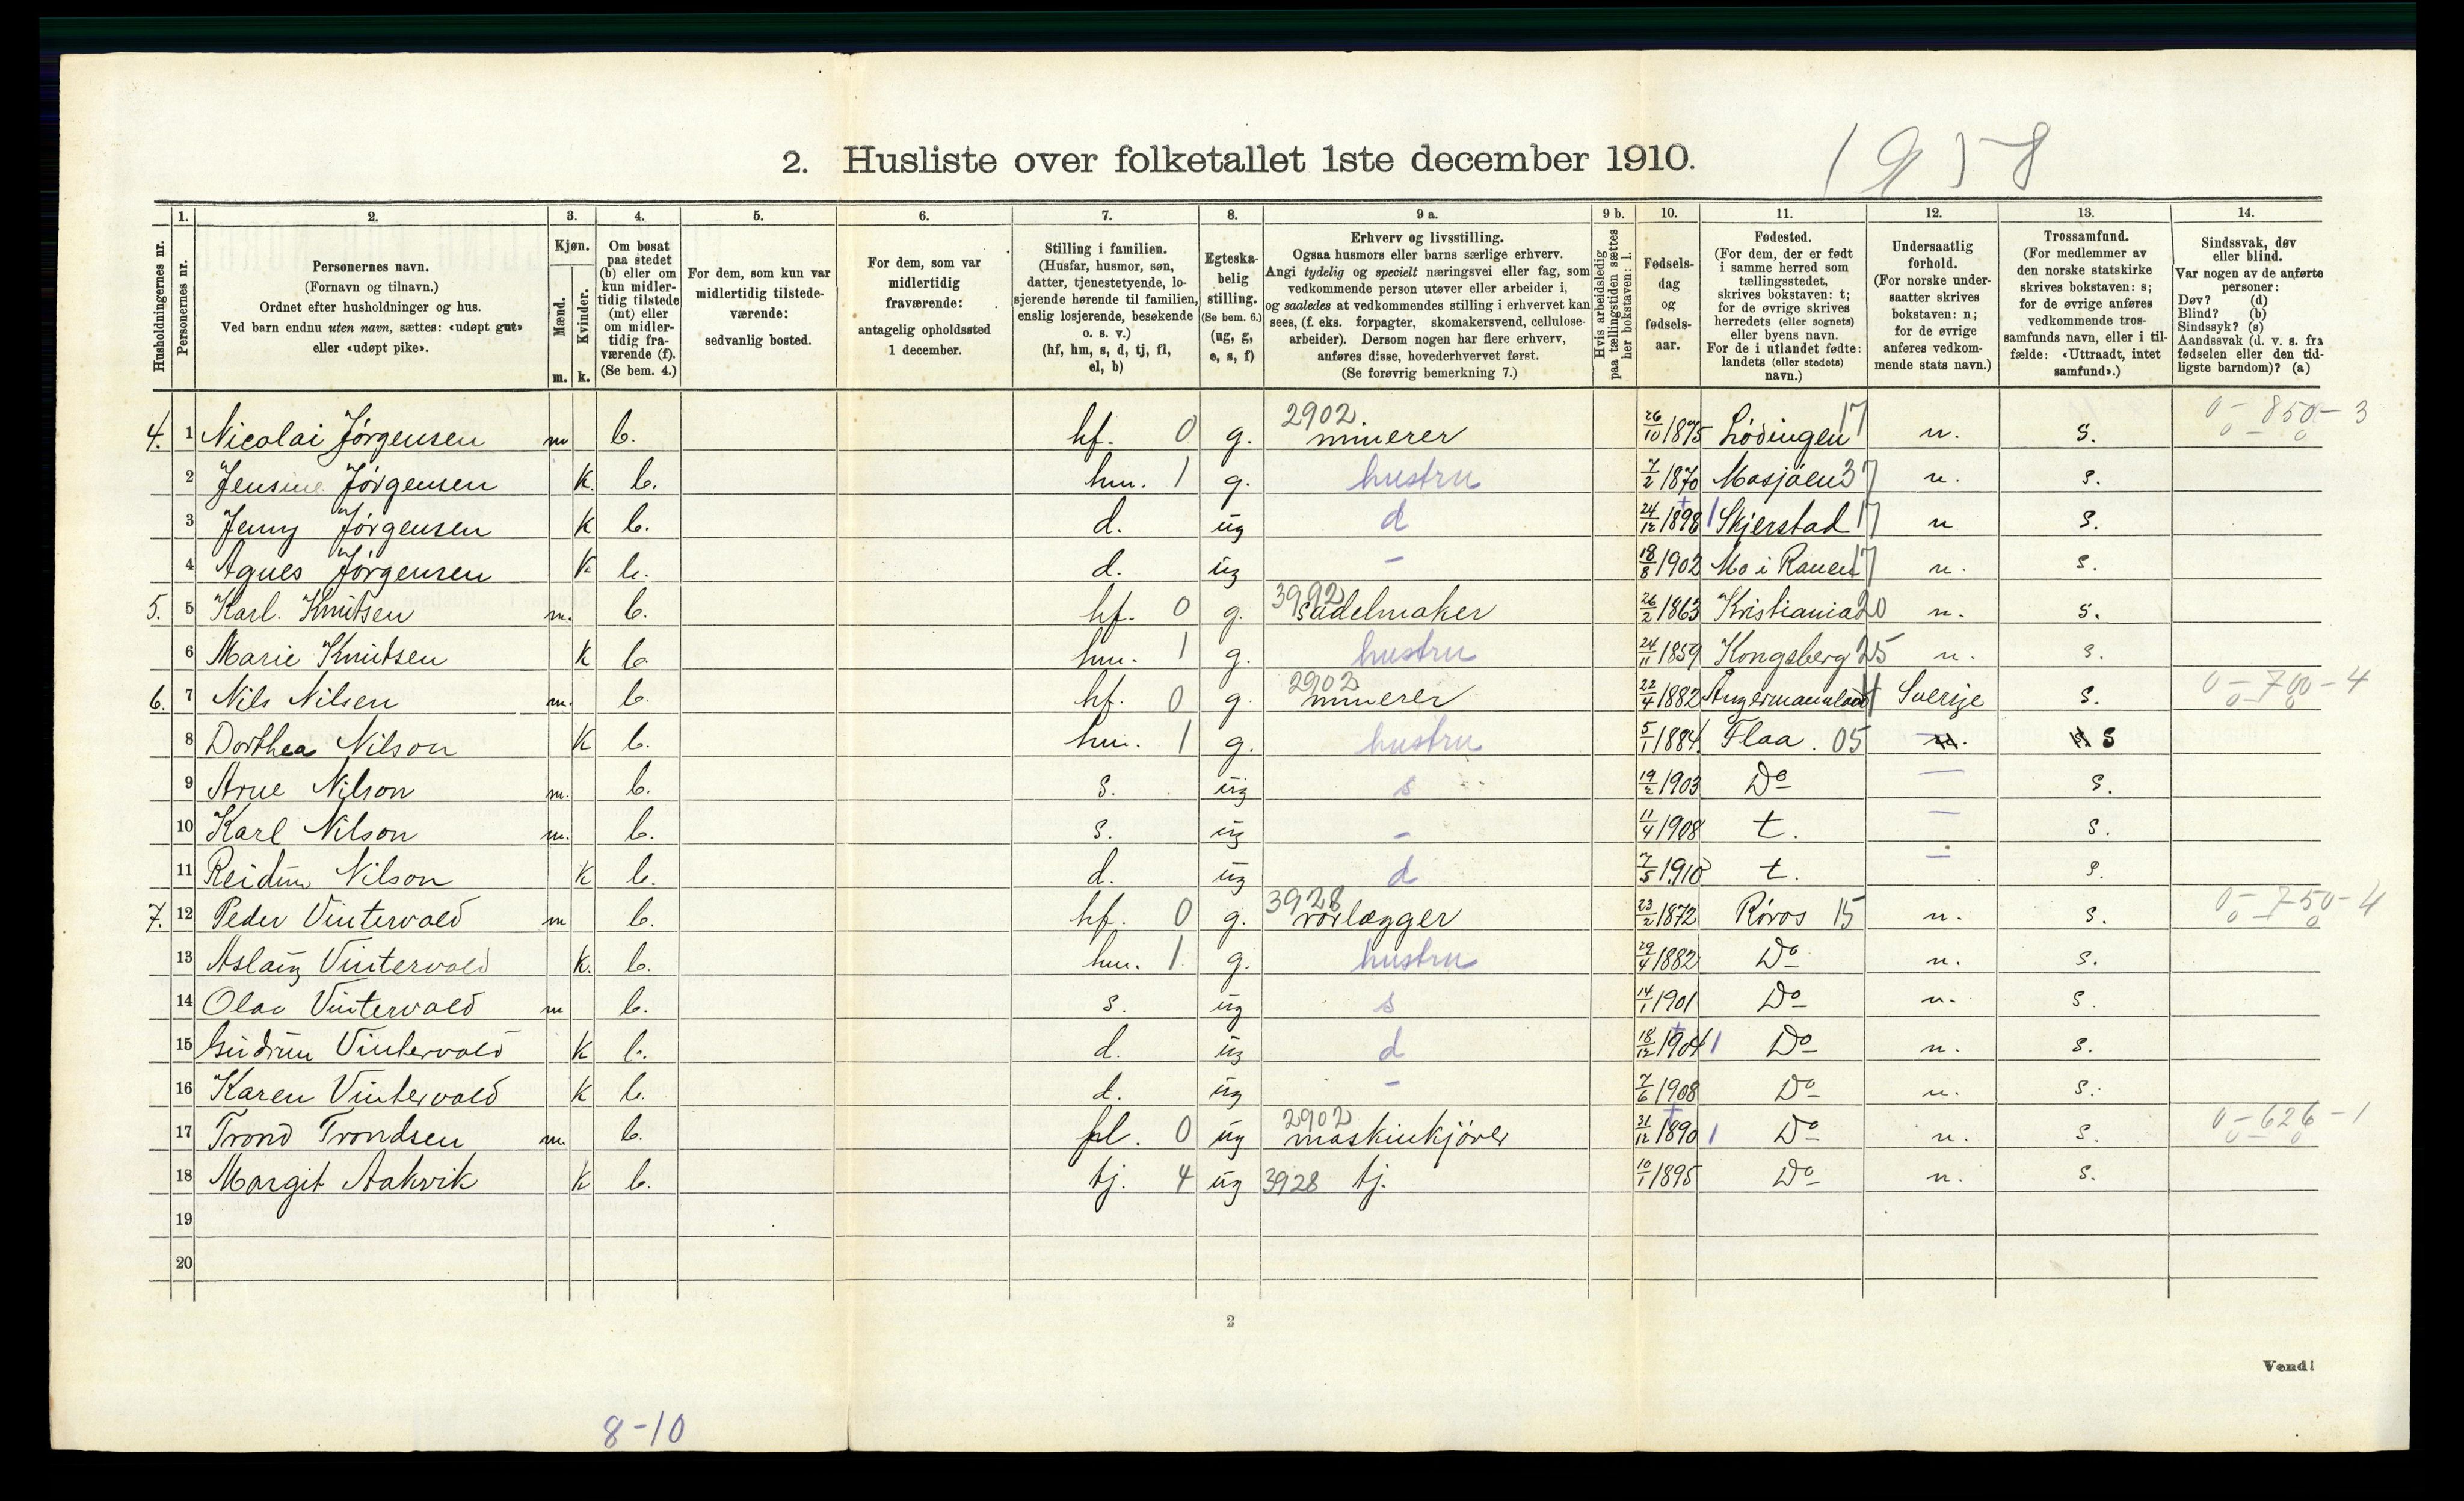 2. Husliste over folketallet 1ste december 1910.
1958
Husholdningernes nr.
1. Personernes nr.
2. Personernes navn. (Fornavn og tilnavn.) Ordnet efter husholdninger og hus. Ved barn endnu uten navn, sættes: «udøpt gut» eller «udøpt pike».
3. Kjøn. Mænd. m. Kvinder. k.
4. Om bosat paa stedet (b) eller om kun midlertidig tilstede (mt) eller om midlertidig fraværende (f). (Se bem. 4.)
5. For dem, som kun var midlertidig tilstedeværende: sedvanlig bosted.
6. For dem, som var midlertidig fraværende: antagelig opholdssted 1 december.
7. Stilling i familien. (Husfar, husmor, søn, datter, tjenestetyende, losjerende hørende til familien, enslig losjerende, besøkende o. s. v.) (hf, hm, s, d, tj, fl, el, b)
8. Egteskabelig stilling. (Se bem. 6.) (ug, g, e, s, f)
9 a. Erhverv og livsstilling. Ogsaa husmors eller barns særlige erhverv. Angi tydelig og specielt næringsvei eller fag, som vedkommende person utøver eller arbeider i, og saaledes at vedkommendes stilling i erhvervet kan sees, (f. eks. forpagter, skomakersvend, cellulosearbeider). Dersom nogen har flere erhverv, anføres disse, hovederhvervet først. (Se forøvrig bemerkning 7.)
9 b. Hvis arbeidsledig paa tællingstiden sættes her bokstaven: l.
10. Fødselsdag og fødselsaar.
11. Fødested. (For dem, der er født i samme herred som tællingsstedet, skrives bokstaven: t; for de øvrige skrives herredets (eller sognets) eller byens navn. For de i utlandet fødte: landets (eller stedets) navn.)
12. Undersaatlig forhold. (For norske undersaatter skrives bokstaven: n; for de øvrige anføres vedkommende stats navn.)
13. Trossamfund. (For medlemmer av den norske statskirke skrives bokstaven: s; for de øvrige anføres vedkommende trossamfunds navn, eller i tilfælde: «Uttraadt, intet samfund».)
14. Sindssvak, døv eller blind. Var nogen av de anførte personer: Døv? (d) Blind? (b) Sindssyk? (s) Aandssvak (d. v. s. fra fødselen eller den tidligste barndom)? (a)
4. 1 Nicolai Jørgensen m b. hf. 0 g. 2902 minerer 26/10 1875 Lødingen 17 n. s. 0-850-3
2 Jensine Jørgensen k. b. hm. 1 g. hustru 7/2 1870 Mosjøen 37 n. s.
3 Jenny Jørgensen k b. d. ug d 24/12 1898 1 Skjerstad 17 n s.
4 Agnes Jørgensen k b. d. ug - 18/8 1902 Mo i Ranen 17 n. s.
5. 5 Karl Knutsen m. b. hf. 0 g. 3992 sadelmaker 26/2 1863 Kristiania 20 n. s.
6 Marie Knutsen k b hm. 1 g. hustru 24/11 1859 Kongsberg 25 n. s.
6. 7 Nils Nilsen m. b. hf. 0 g. 2902 minerer 22/4 1882 Ångermanland Sverige s. 0-700-4
8 Dorthea Nilson k b. hm. 1 g. hustru 5/1 1884 Flaa. 05 n. s
9 Arne Nilson m. b. s. ug s 19/2 1903 Do — s.
10 Karl Nilson m. b. s. ug - 11/4 1908 t. — s.
11 Reidun Nilson k b. d. ug d 7/5 1910 t. — s.
7. 12 Peder Vintervold m b. hf. 0 g. 3928 rørlægger 23/2 1872 Røros 15 n. s. 0-750-4
13 Aslaug Vintervold k. b. hm. 1 g. hustru 29/4 1882 Do n. s.
14 Olav Vintervold m b. s. ug s 14/1 1901 Do n. s.
15 Gudrun Vintervold k b. d. ug d 18/12 1904 1 Do n. s.
16 Karen Vintervold k b. d. ug - 7/6 1908 Do n. s.
17 Trond Trondsen m. b. fl. 0 ug 2902 maskinkjører 31/12 1890 1 Do n. s. 0-626-1
18 Margit Aakvik k b. tj. 4 ug 3928 tj. 10/1 1895 Do n. s.
19
20
2
Vend!
8-10